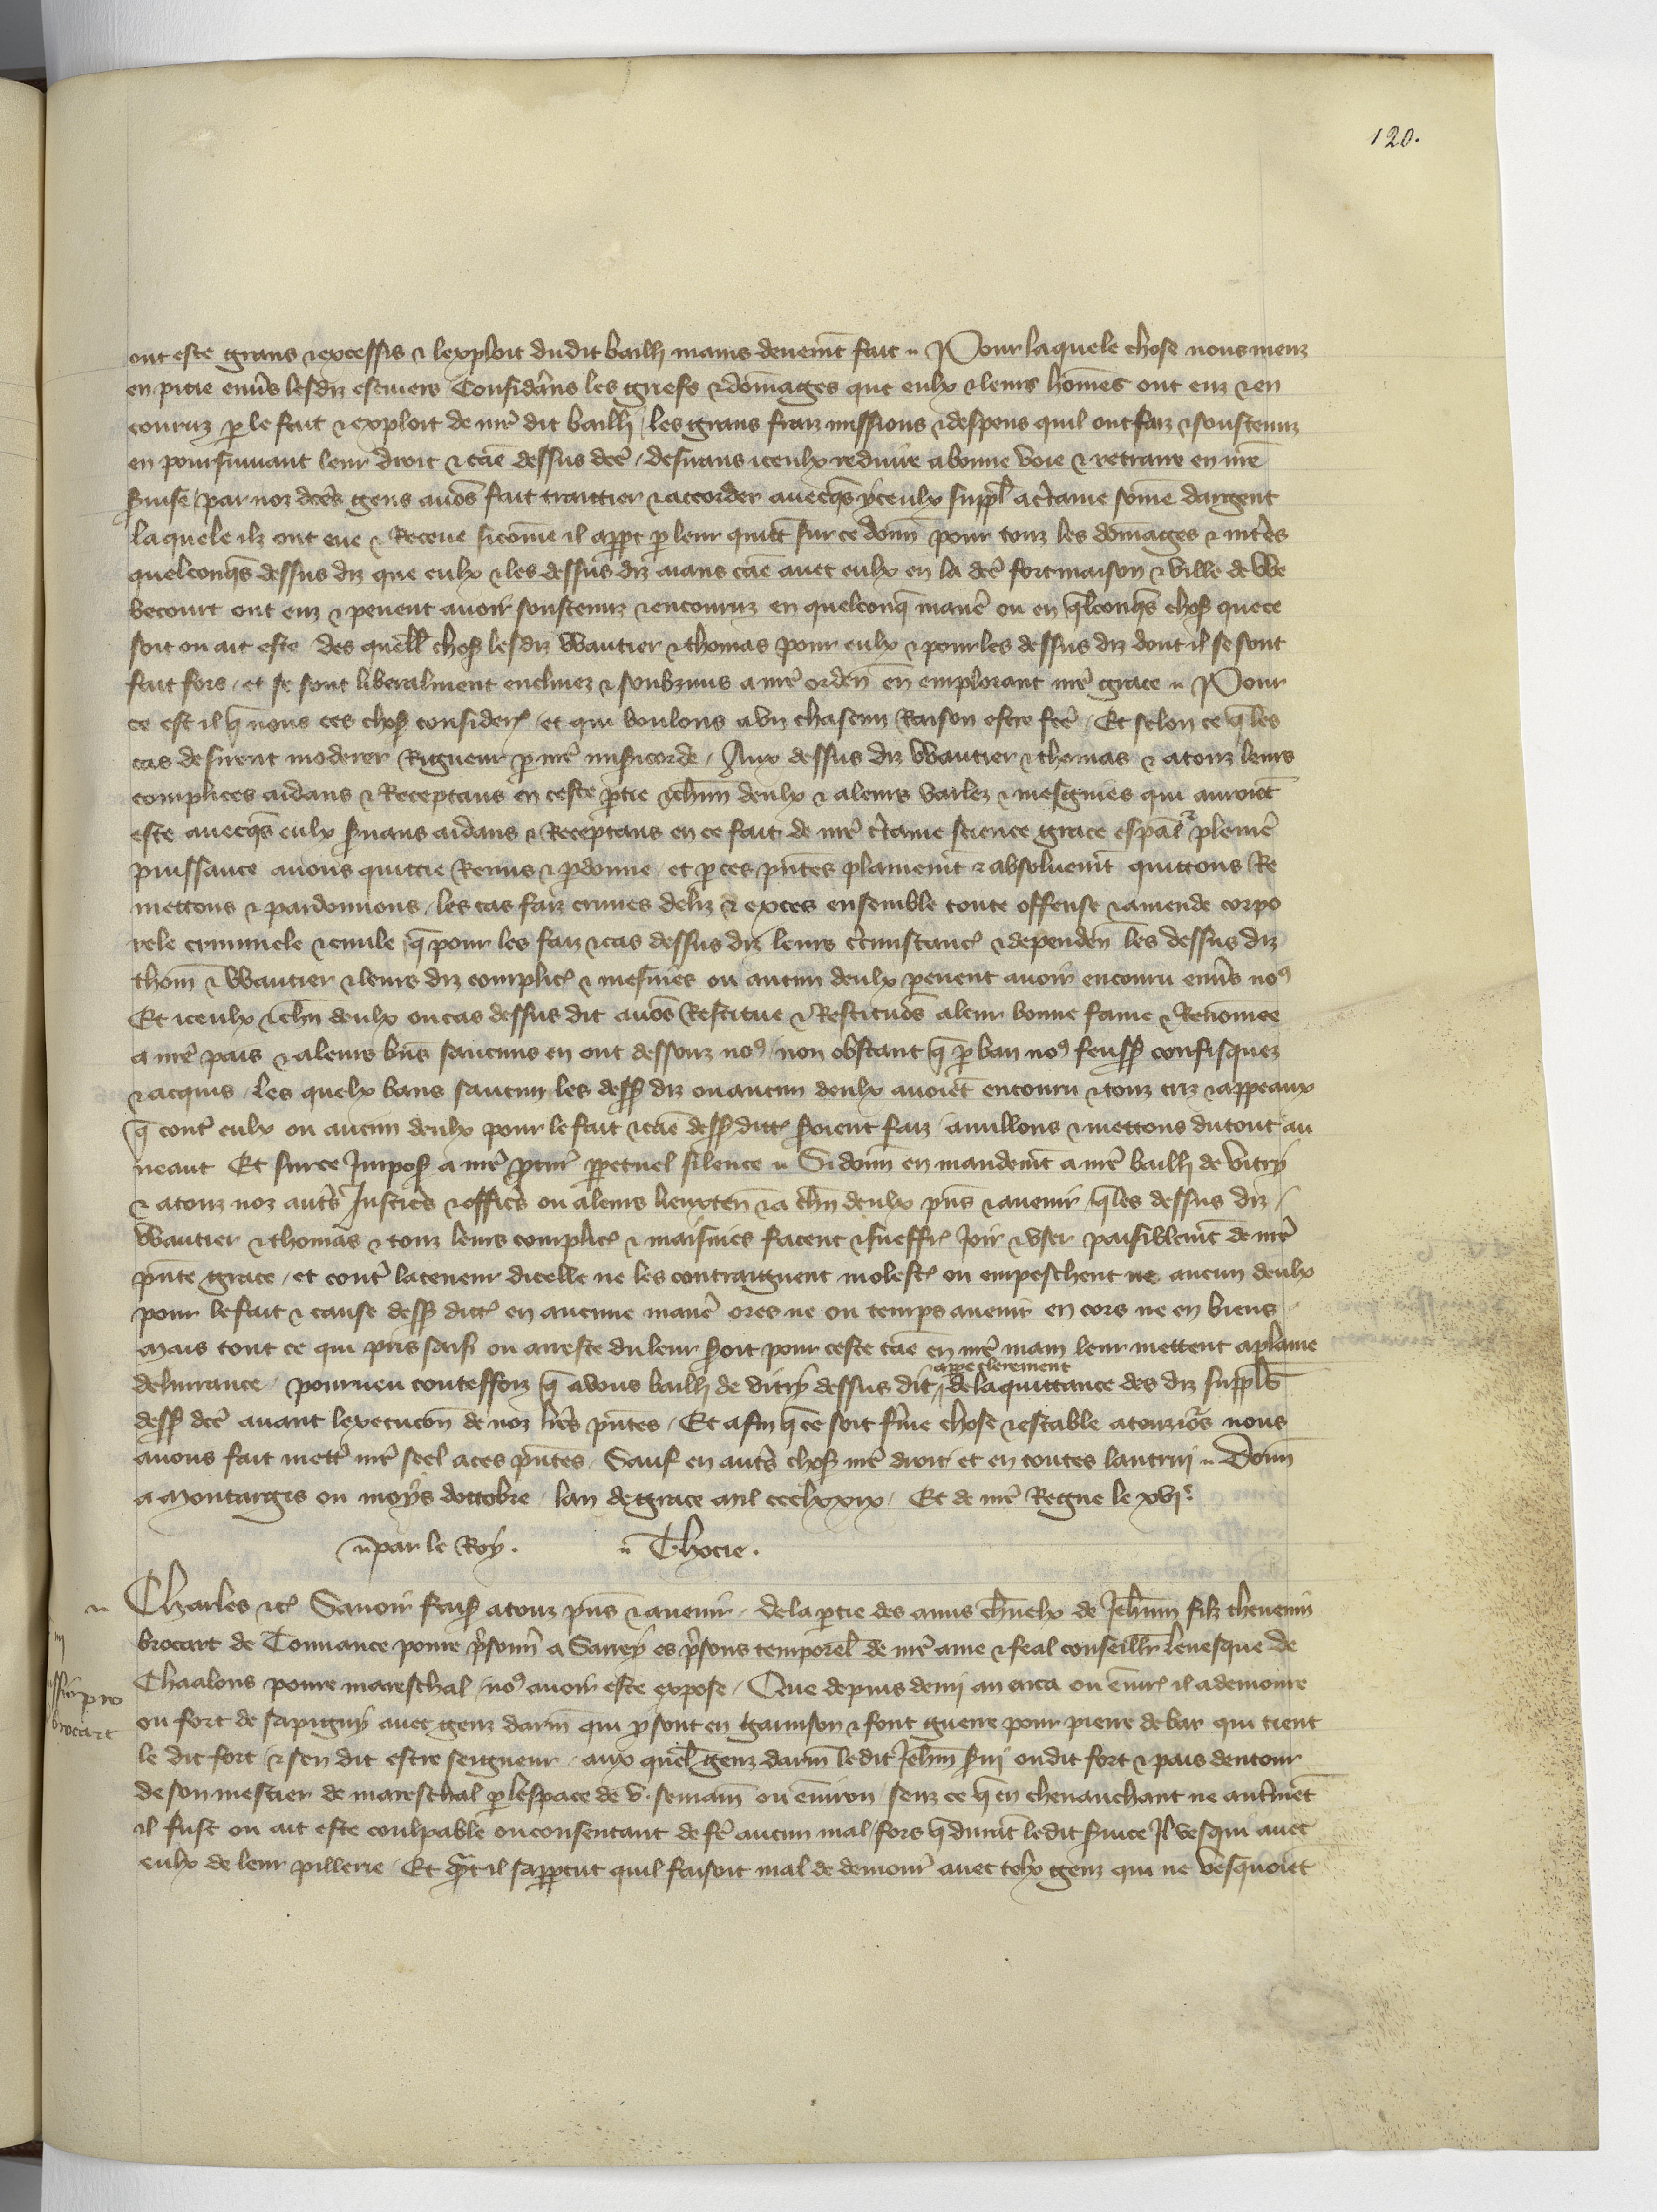 120.
ont este grans & excessis & lexploit dudit bailli mains deuemt fait Pour laquele chose nous meuz
en pitie enũs lesdiz escuiers Considãns les griefs & dommages que eulx & leurs hommes ont euz & en
couruz p le fait & exploit de nre dit bailli les grans fraiz missions & despens quil ont faiz & soustenuz
en poursuiuant leur droit & cãe dessus dce desirans iceulx reduire a bonne voie & retraire en nre
suise par noz dces gens auõs fait traittier & accorder auecqs yceulx suppl actaine some dargent
laquele ilz ont eue & Receue sicome il appt p leur quitt sur ce donn pour touz les domages & intes
quelconqs dessus diz que eulx & les dessus diz aians cãe auec eulx en la dce fortmaison & ville de We
becourt ont euz & peuent auoir soustenuz & encouruz en quelconq manie ou en qlconqs chos que ce
soit ou ait este des quell chos lesdiz Wautier & thomas pour eulx & pour les dessus diz dont il se sont
fait fors et se sont liberalment enclinez & soubzmis a nre orden en emplorant nre grace Pour
ce est il q nous ces chos consider et qui voulons a vn chascun Raison estre fce Et selon ce q les
cas desirent moderer Rigueur p nre misicorde Aux dessus diz Wautier & thomas & atouz leurs
complices aidans & Receptans en ceste ptie & chun deulx & aleurs varlez & mesgnies qui auroiet
este auecqs eulx suians aidans & Receptans en ce fait de nre ctaine science grace espal & pleniere
puissance auons quittie Remis & pdonne et p ces pntes plainemt & absoluemt quittons Re
mettons & pardonnons les cas faiz crimes deliz & exces ensemble toute offense & amende corpo
rele criminele & ciuile q pour les faiz & cas dessus diz leurs circunstanc & dependen les dessus diz
thom & Wautier & leurs diz complic & mesnies ou aucun deulx peuent auoir encouru enũs no9
Et iceulx & chun deulx ou cas dessus dit auõs Restitue & Restituõs aleur bonne fame & Renomee
a nre pais & aleurs bns saucuns en ont dessouz no9 non obstant q p ban no9 feuss confisquez
& acquis les quelx bans saucun les dess diz ou aucun deulx auoiet encouru & touz criz & appeaux
q cont eulx ou aucun deulx pour le fait & cãe dess ditt seroient faiz anullons & mettons du tout au
neant Et sur ce Impos a nre pcur ppetuel silence Si donn en mandemt a nre bailli de Vitry
& atouz noz auts Justices & offices ou aleurs lieuxten & a chun deulx pns & auenir q les dessus diz
Wautier & thomas & touz leurs complic & maisnies facent & sueffr Joir & vser paisiblemt de nre
pnte grace et cont la teneur dicelle ne les contraignent molest ou empeschent ne aucun deulx
pour le fait & cause dess ditt en aucune manie ores ne ou temps auenir en cors ne en biens
Mais tout ce qui pris saisi ou arreste du leur seroit pour ceste cãe en nre main leur mettent a plaine
deliurance pourueu touteffoiz q avous bailli de vitry dessus dit appe clerement de la quittance des diz suppls
dess dce auant lexecucon de noz lres pntes Et afin q ce soit ferme chose & estable atouziours nous
auons fait mett nre seel a ces pntes Sauf en auts chos nre droit et en toutes lautruy Donn
a Montargis ou moys doctobre lan de grace mil ccclxxix Et de nre Regne le xvie
par le Roy. Thocie.
Charles &c Sauoir fais atouz pns & auenir de la ptie des amis chnelx de Jehnin filz theuenin
brocart de Connance poure psonn a Sarrey es psons temporel de nre ame & feal conseillr leuesque de
Chaalons poure mareschal no9 auoir este expose Que depuis demi an enca ou enuir il a demoure
ou fort de sapigny auec genz darm qui p sont en garnison & font guerre pour pierre de bar qui tient
le dit fort & sen dit estre seigneur aux quel genz darm ledit Jehnin sui ou dit fort & pais dentour
de son mestier de mareschal p lespace de v. semain ou enuiron senz ce q en cheuauchant ne autmet
il fust ou ait este coulpable ou consentant de fe aucun mal fors q durat ledit suice Il vesqui auec
eulx de leur pillerie Et quat il sappcut quil faisoit mal de demour auec telx genz qui ne vesquoiet
brocart